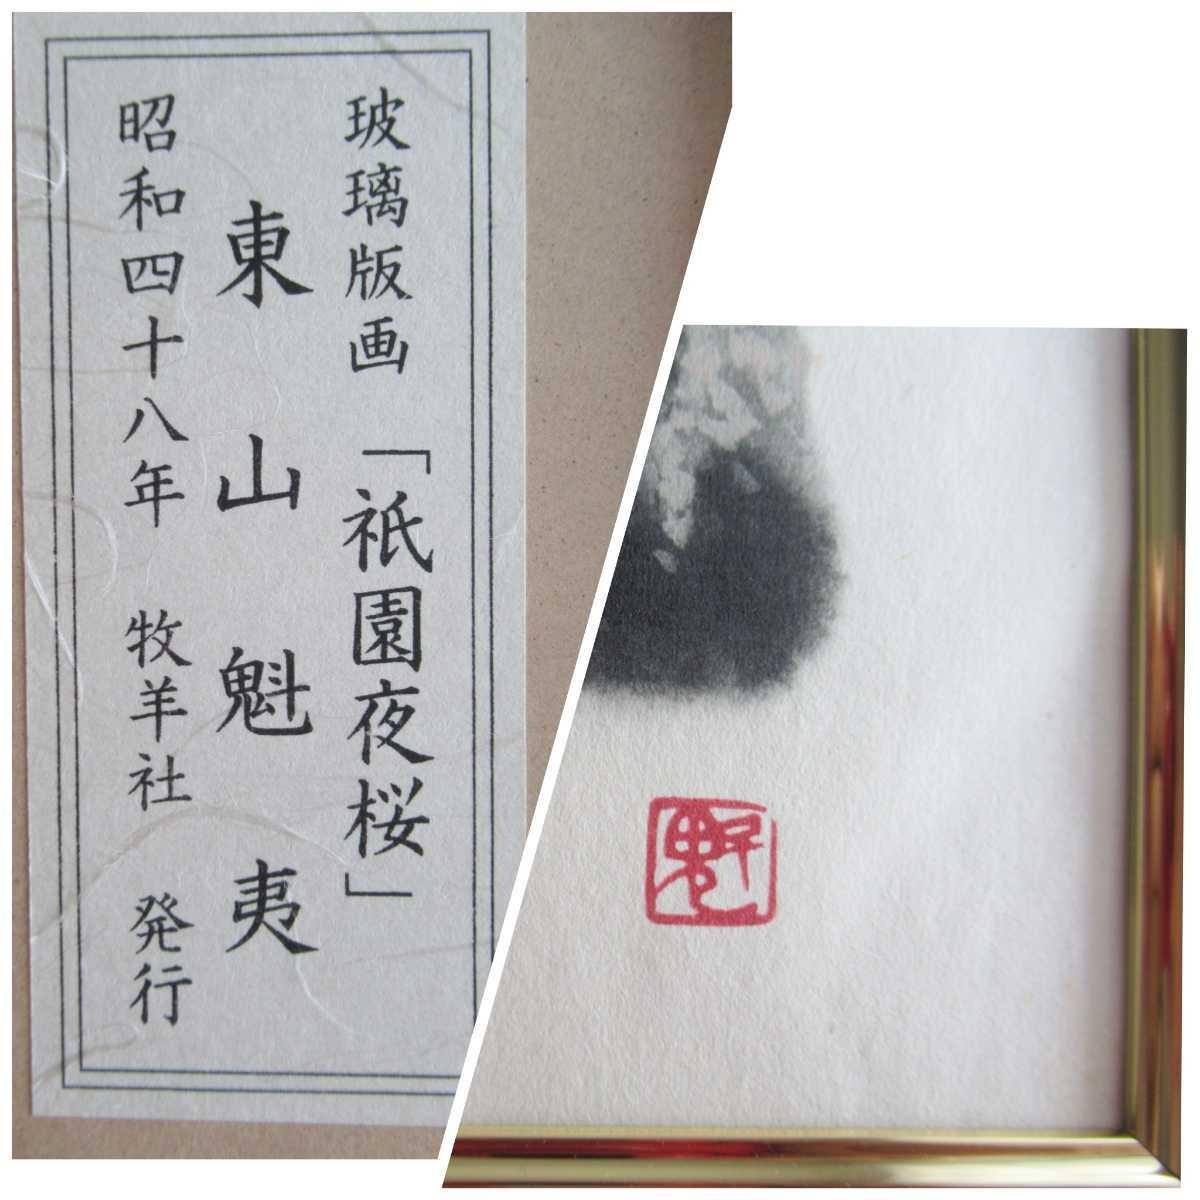 玻璃版画「祇園夜桜」
東山魁夷
昭和四十八年 牧羊社 発行
魁